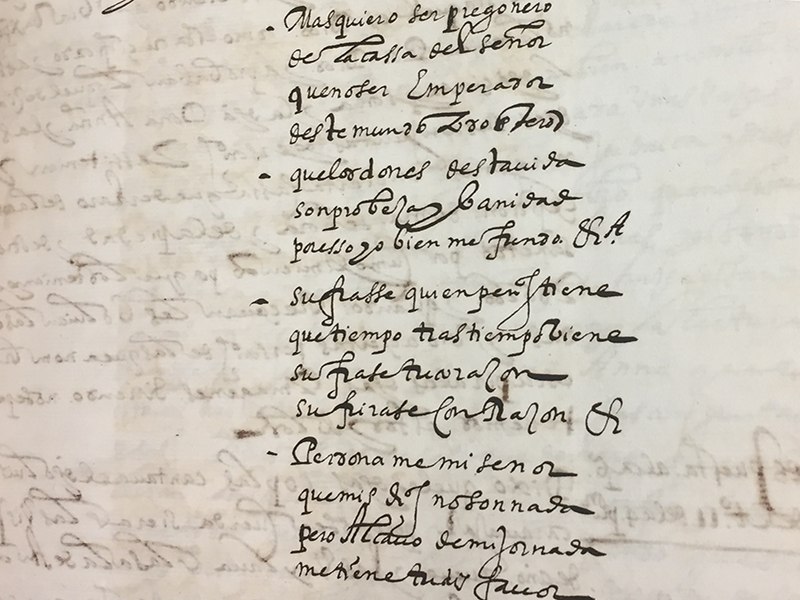 Mas quiero ser pregonero
de la cassa del señor
que no ser Emperador
deste mundo
que los dones desta vida
son probeza y banidad
por esso yo bien me fundo. &ª
sufrasse quien pens tiene
que tiempo tras tiempo biene
sufrase tu corazon
sufrirase con Razon &
Perdona me mi senor
que mis ds no son nada
pero Al cavo de mi Jornada
me tiene tu favor